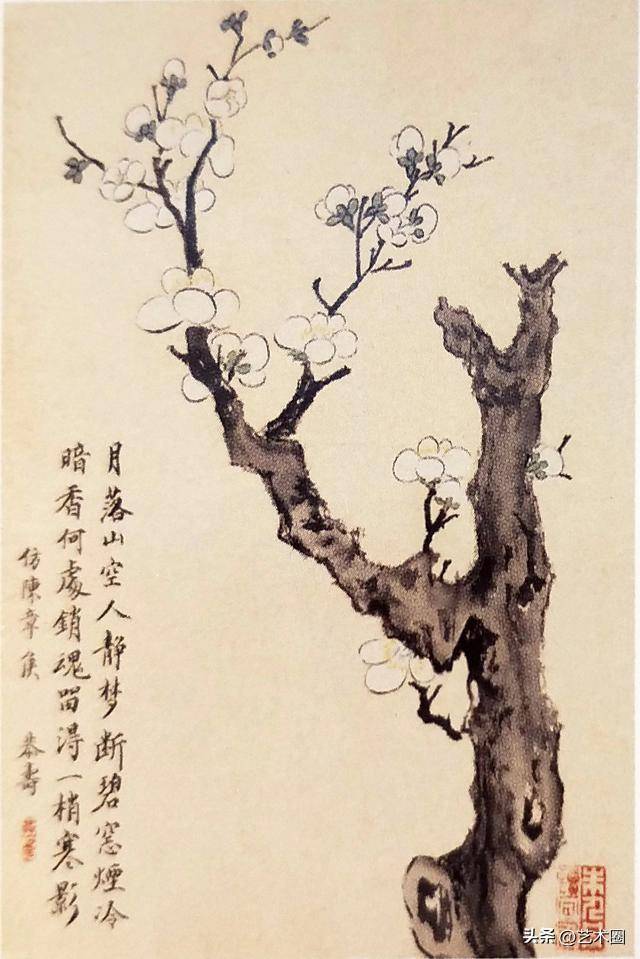 月落山空人静梦断碧窓煙冷
暗香何處銷魂留得一梢寒影
仿陳章侯 恭壽
头条 @艺术圈